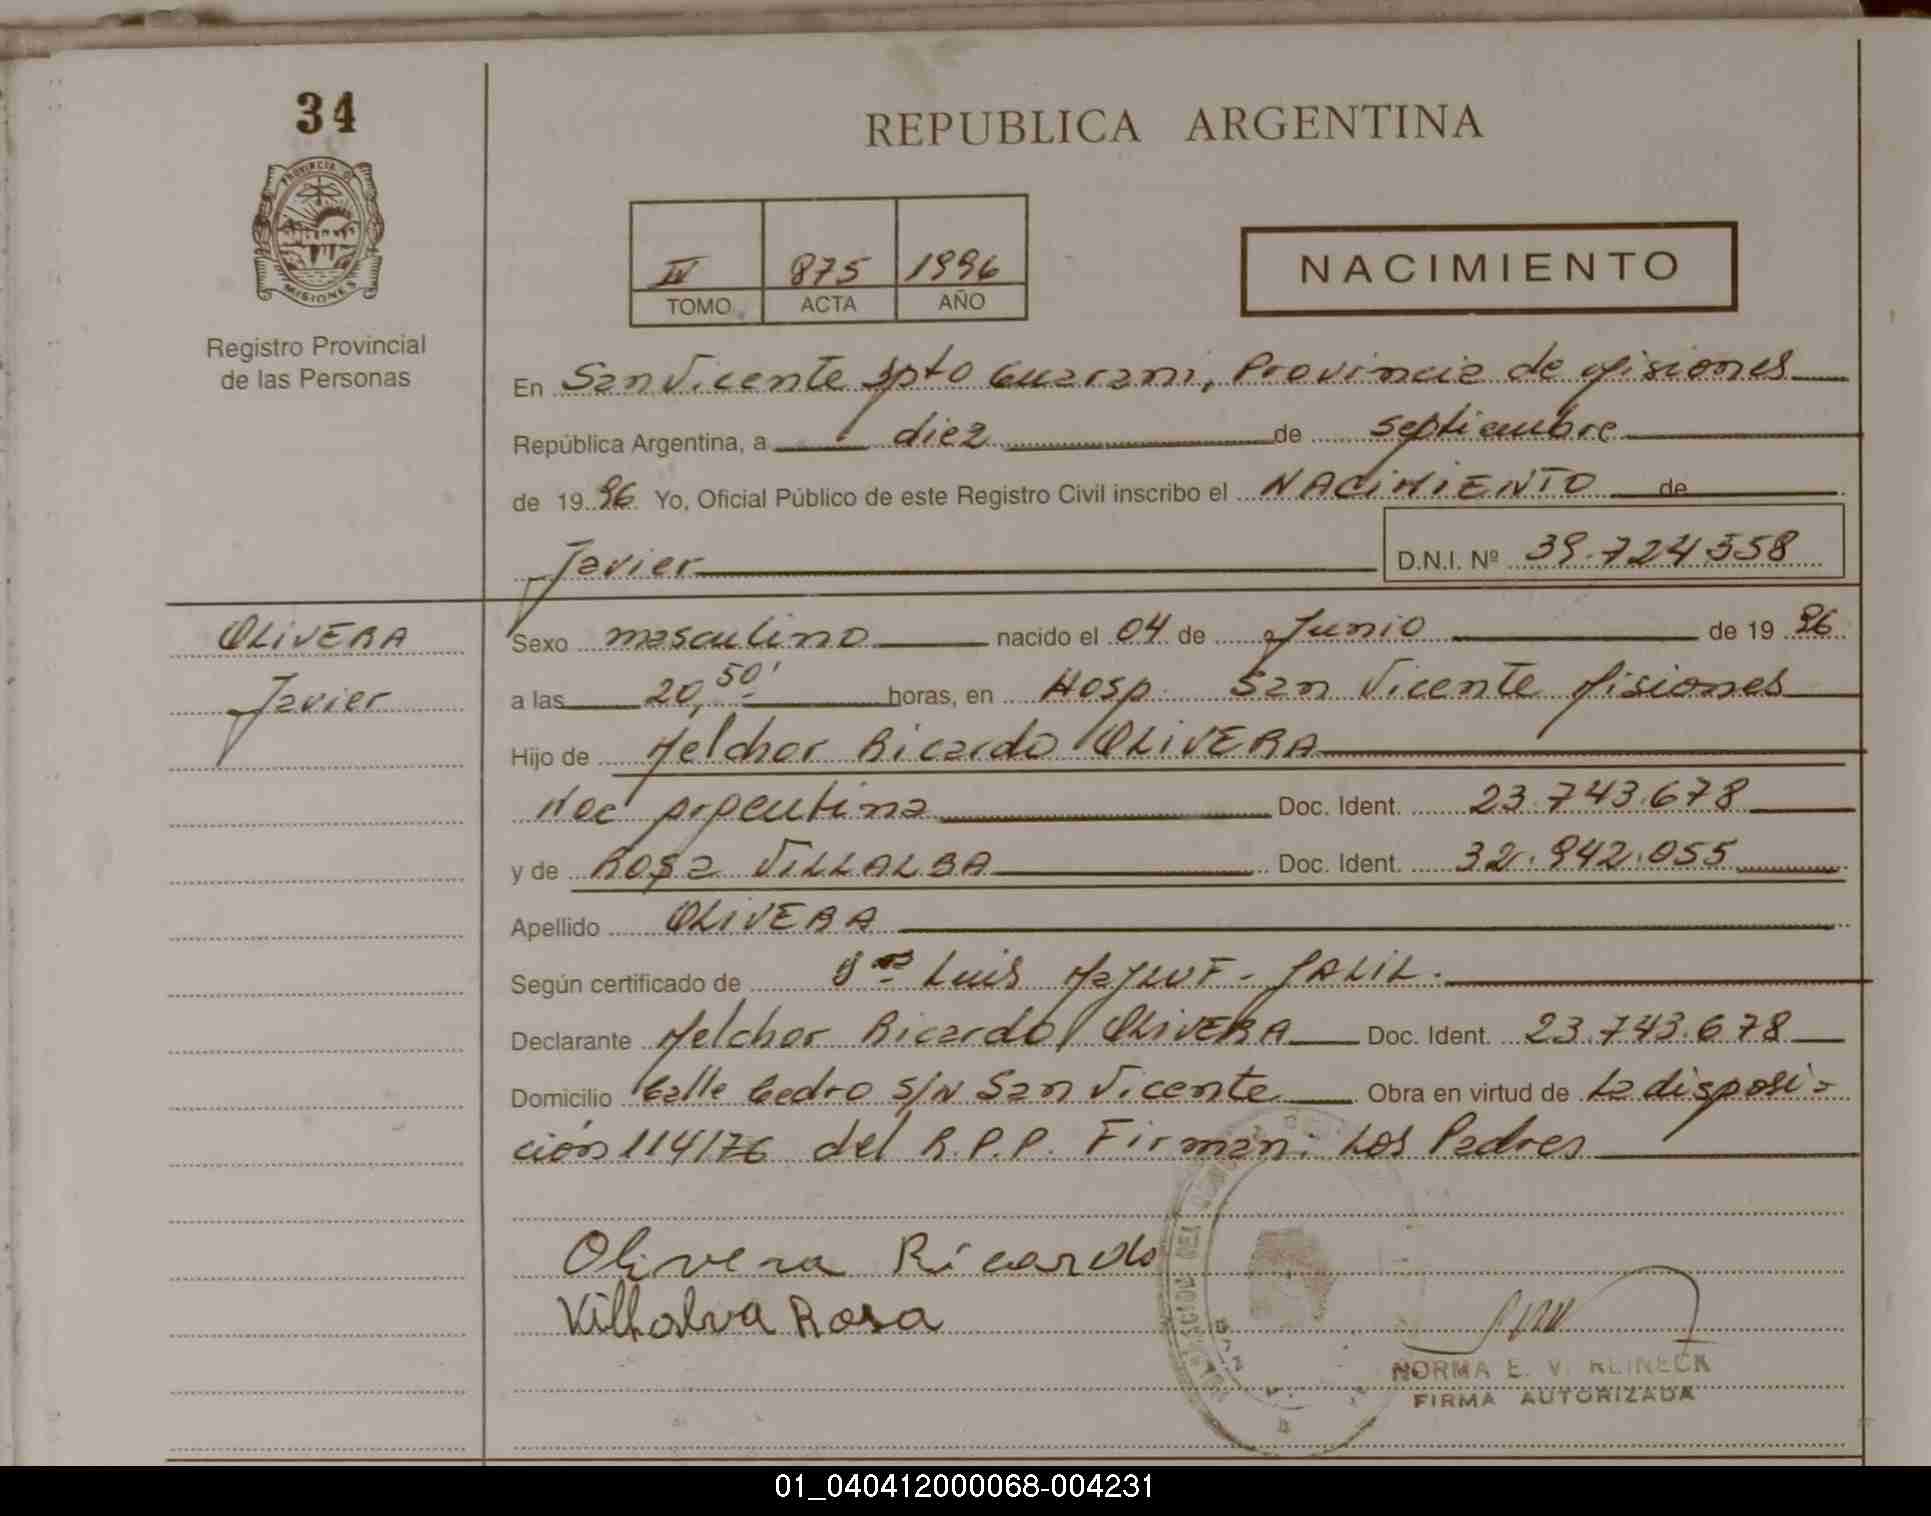 34
PROVINCIA DE
MISIONES
Registro Provincial
de las Personas
REPUBLICA ARGENTINA
IV 875 1996
TOMO ACTA AÑO
NACIMIENTO
En San Vicente Dpto Guarani, Provincia de Misiones
República Argentina, a diez de septiembre
de 1996 Yo, Oficial Público de este Registro Civil inscribo el NACIMIENTO de
Javier D.N.I. Nº 39.724 558
OLIVERA
Javier
Sexo masculino nacido el 04 de Junio de 1996
a las 20,50' horas, en Hosp. San Vicente Misiones
Hijo de Melchor Ricardo OLIVERA
Nac Argentina Doc. Ident. 23.743.678
y de Rosa VILLALBA Doc. Ident. 32.942.055
Apellido OLIVERA
Según certificado de Luis JALIL.
Declarante Melchor Ricardo OLIVERA Doc. Ident. 23.743.678
Domicilio Calle Cedro S/N San Vicente Obra en virtud de La disposi-
ción 114/76 del R.P.P. Firman: Los Padres
Olivera Ricardo
Villalva Rosa
NORMA E. V. REINECK
FIRMA AUTORIZADA
01_040412000068-004231